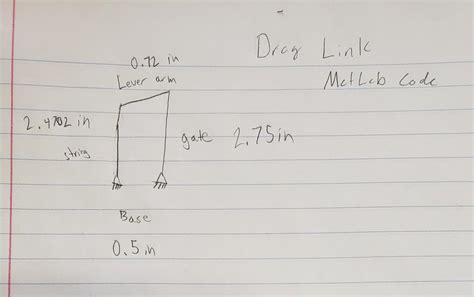 Drag Link
MatLab Code
0.72 in
Lever arm
2.4702 in
string
gate 2.75in
Base
0.5in